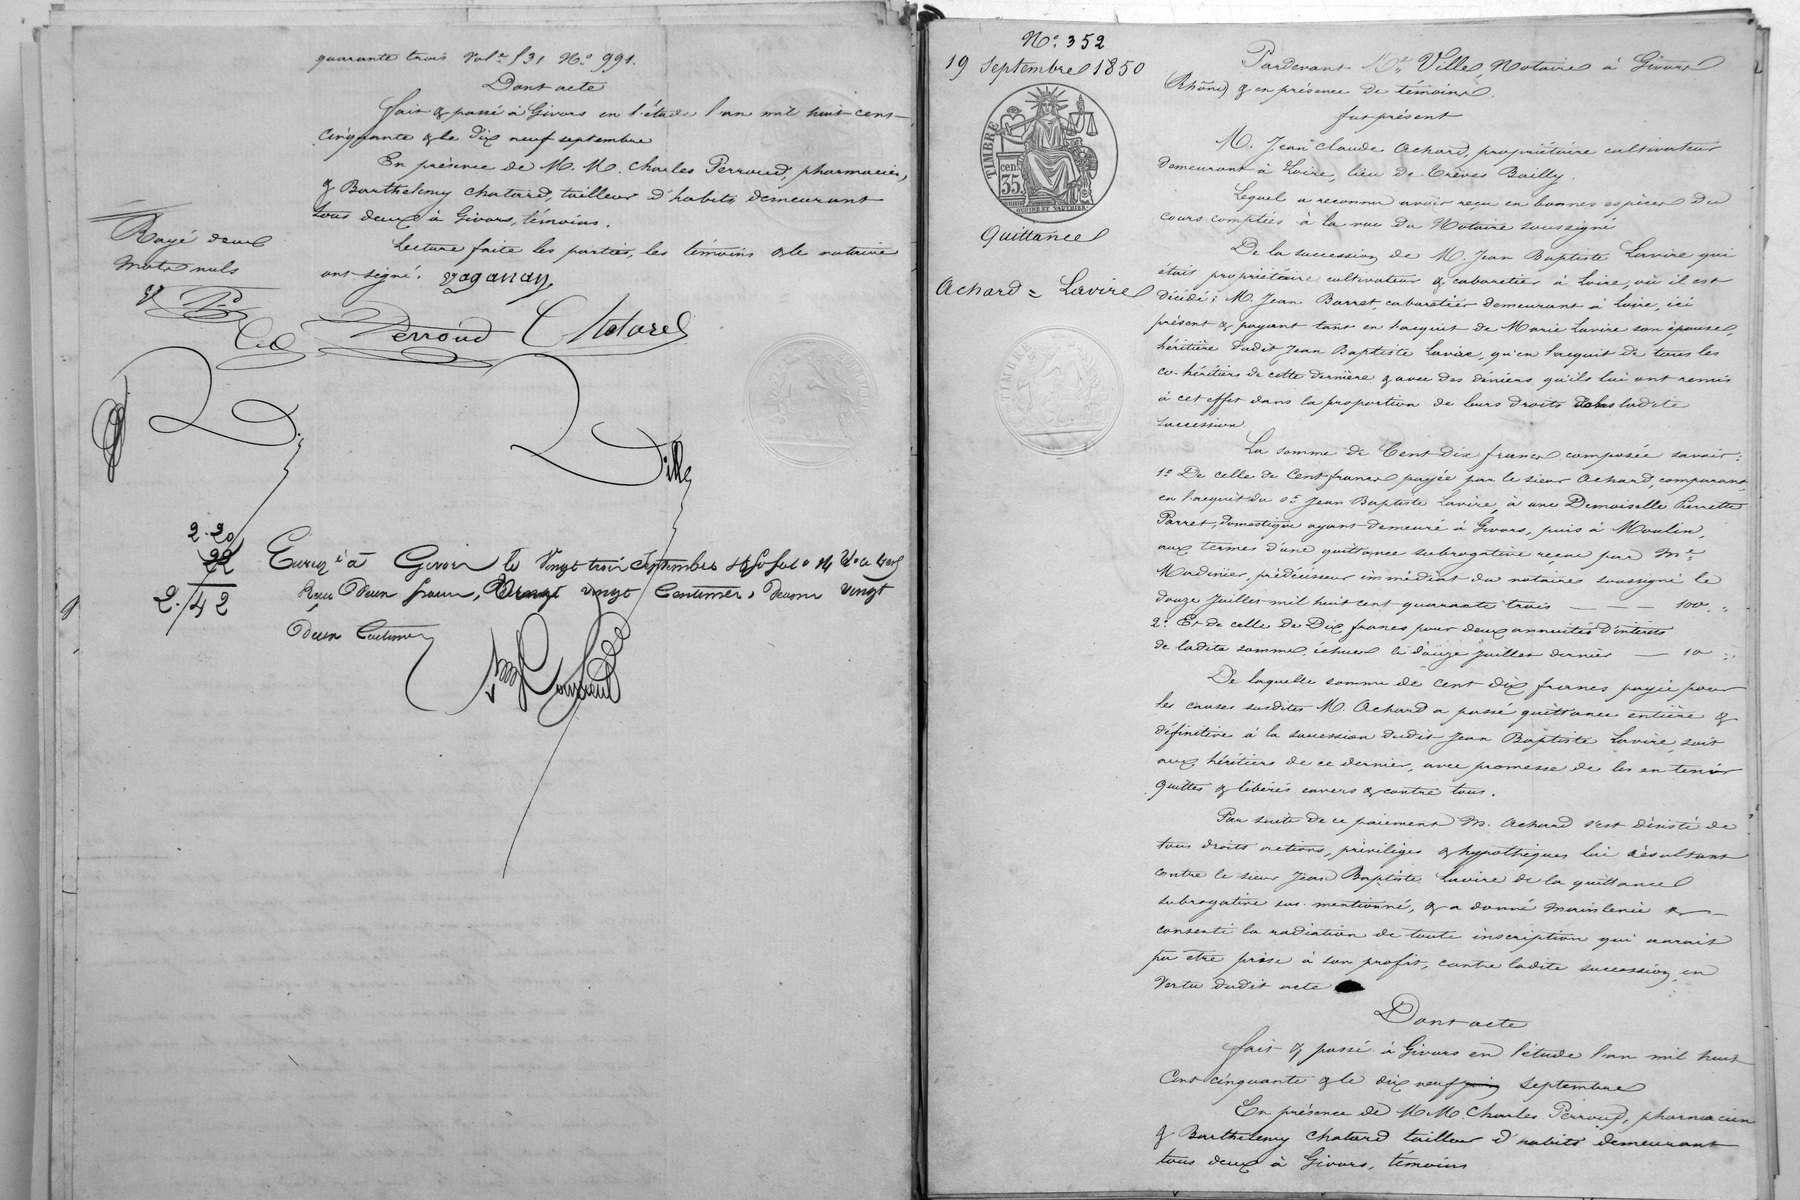 quarante trois vol. 131 N° 991.
Dont acte
fait & passé à Givors en l'étude l'an mil huit cent
cinquante & le dix neuf septembre
En présence de M. M. Charles Perroud, pharmacien,
& Barthélemy Chatard, tailleur d'habits demeurant
tous deux à Givors, témoins.
Lecture faite les parties, les témoins & le notaire
ont signé. Vaganay
Rayé deux
mots nuls
Perroud Chatard
Ville
2.20
22
2.42
à Givors le Vingt trois Septembre
Reçu Deux francs, vingt Centimes, Decime vingt
Deux Centimes
N° 352
19 Septembre 1850
TIMBRE
35 cen.
Quittance
Achard = Lavire
Pardevant Me Ville, Notaire à Givors
(Rhône) & en présence de témoins.
fut présent
M. Jean Claude Achard, propriétaire cultivateur
demeurant à Loire, lieu de Trèves Bailly.
Lequel a reconnu avoir reçu en bonnes espèces du
cours comptées à la vue du Notaire soussigné
De la succession de M. Jean Baptiste Lavire qui
était propriétaire cultivateur & cabaretier à Loire, où il est
décédé ; M. Jean Barret, cabaretier demeurant à Loire, ici
présent & payant tant en l'acquit de Marie Lavire son épouse,
héritière dudit Jean Baptiste Lavire, qu'en l'acquit de tous les
co-héritiers de cette dernière & avec des deniers qu'ils lui ont remis
à cet effet dans la proportion de leurs droits dans ladite
succession
La somme de Cent dix francs composée savoir :
1° De celle de Cent francs payée par le sieur Achard, comparant,
en l'acquit du sr Jean Baptiste Lavire, à une Demoiselle Pierrette
Parret, domestique ayant demeuré à Givors, puis à Moulin,
aux termes d'une quittance subrogative reçue par Me
Mardinier, prédécesseur immédiat du notaire soussigné le
douze Juillet mil huit cent quarante trois — — — 100. "
2° Et de celle de Dix francs pour deux annuités d'intérêts
de ladite somme échues le douze Juillet dernier — 10 "
De laquelle somme de cent dix francs payée pour
les causes susdites M. Achard a passé quittance entière &
définitive à la succession dudit Jean Baptiste Lavire, soit
aux héritiers de ce dernier, avec promesse de les en tenir
quittes & libérés envers & contre tous.
Par suite de ce paiement M. Achard s'est désisté de
tous droits actions, privilèges & hypothèques lui résultant
contre le sieur Jean Baptiste Lavire de la quittance
subrogative sus-mentionné, & a donné mainlevée &
consenti la radiation de toute inscription qui aurait
pu être prise à son profit, contre ladite succession, en
vertu dudit acte
Dont acte
fait & passé à Givors en l'étude l'an mil huit
cent cinquante & le dix neuf septembre
En présence de M. M Charles Perroud, pharmacien
& Barthélemy Chatard tailleur d'habits demeurant
tous deux à Givors, témoins